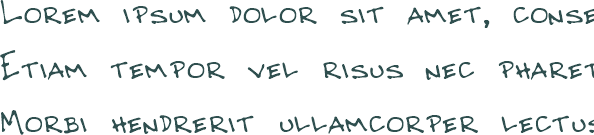 Lorem ipsum dolor sit amet, conse
Etiam tempor vel risus nec pharet
Morbi hendrerit ullamcorper lectus